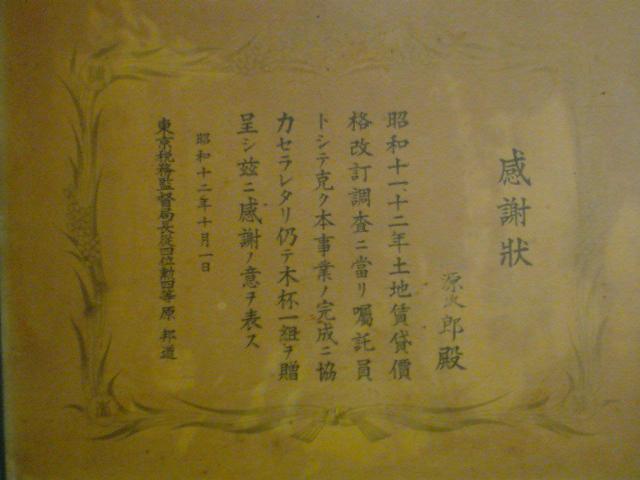 感謝狀
源次郎殿
昭和十一、十二年土地賃貸價
格改訂調査ニ當リ囑託員
トシテ克ク本事業ノ完成ニ協
力セラレタリ仍テ木杯一組ヲ贈
呈シ玆ニ感謝ノ意ヲ表ス
昭和十二年十月一日
東京稅務監督局長從四位勳四等原邦道